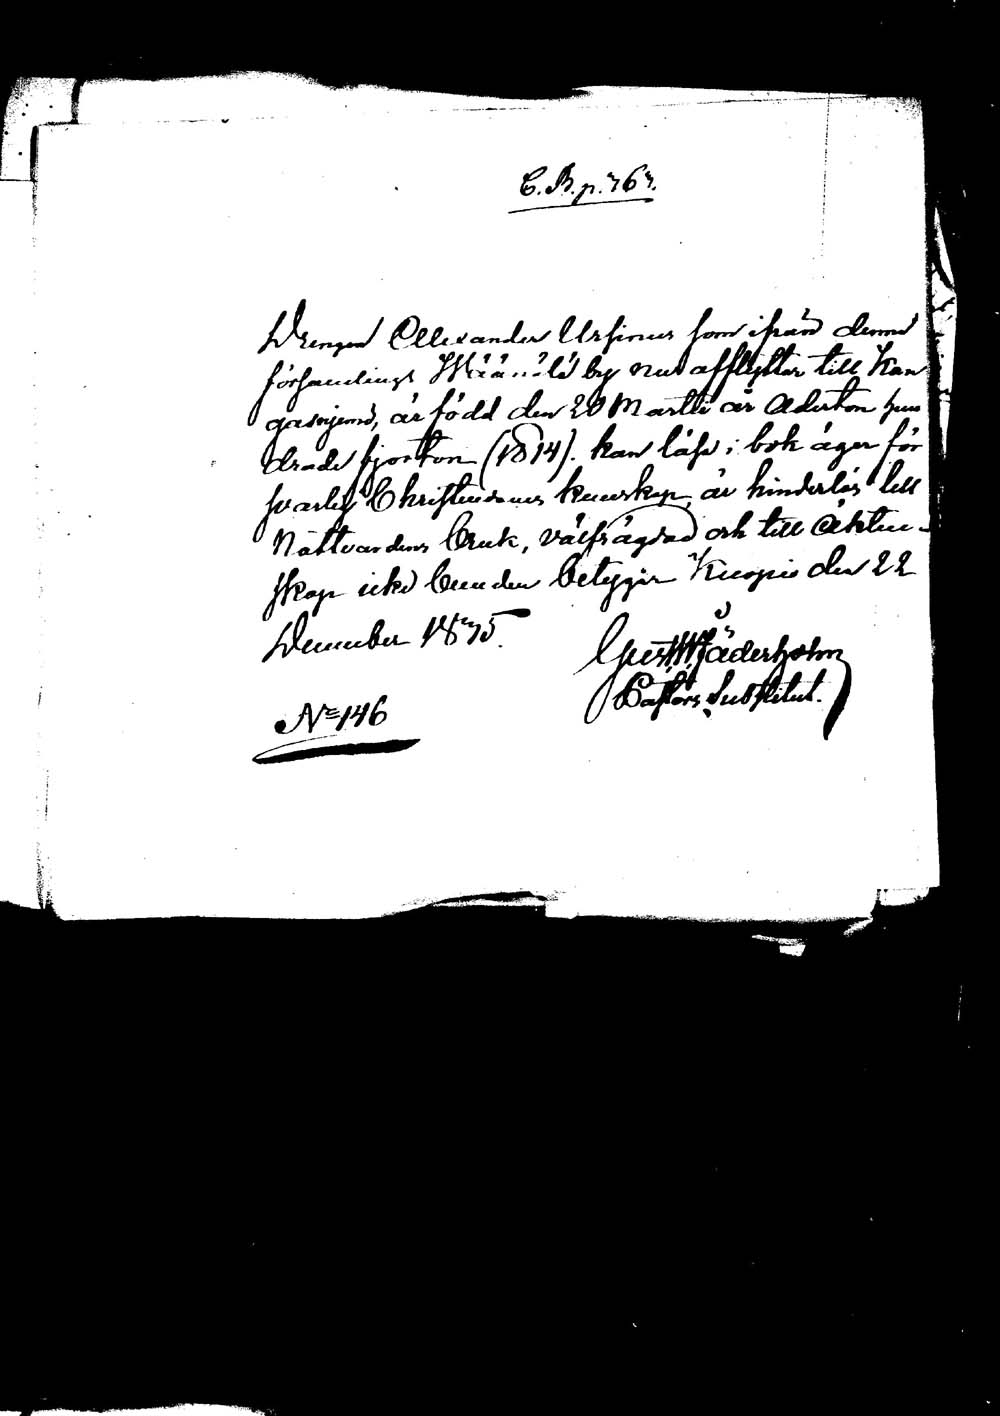 C. B. p. 767.
Drengen Allexander Ursinus som ifrån denna
församlings Wäänälä by nu afflyttar till Kan
gasniemi, är född den 20 Martii år Aderton hun
drade fjorton (1814). kan läsa i bok äger för
svarlig Christendoms kunskap, är hinderlös till
Nattvardens bruk, välfrägdad och till Äkten-
skap icke bunden betygar Kuopio den 22
December 1875.
Gust W Söderholm
Pastors Substitut.
No 146